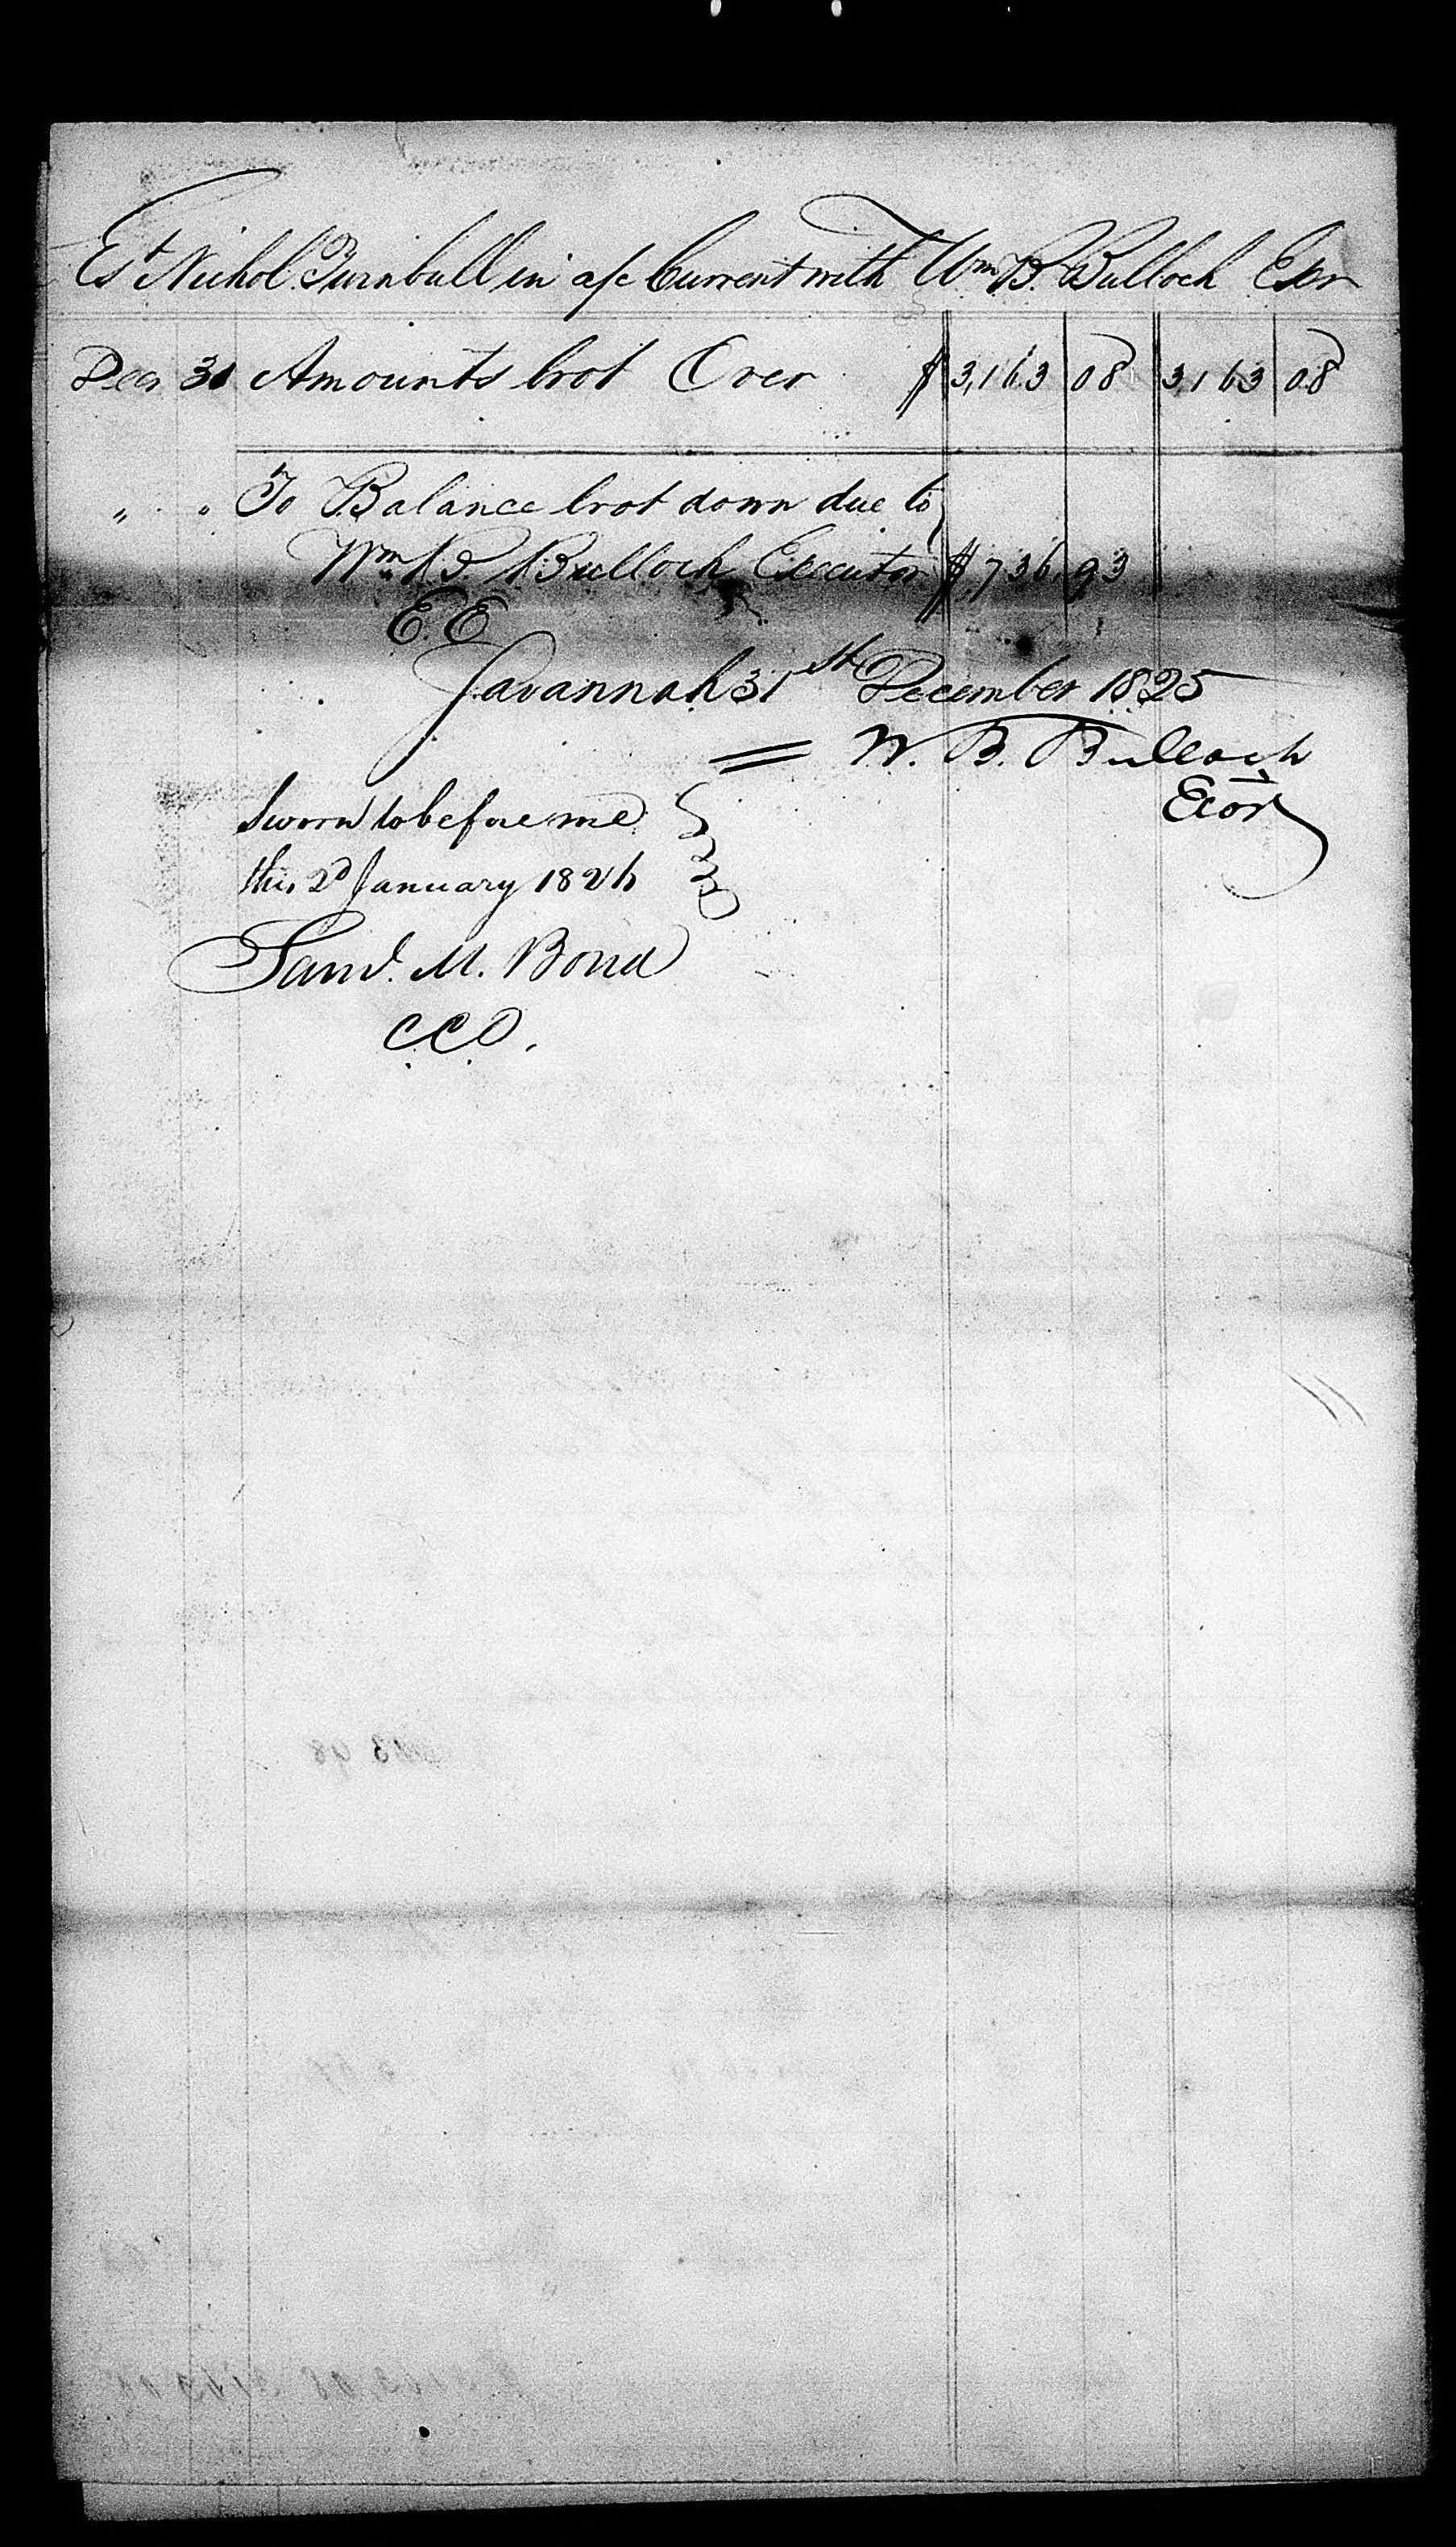 Est Nichol Turnball in a/c Current with Wm B. Bulloch Exr
Decr 31 Amounts brot Over $ 3,163 08 3,163 08
" " To Balance brot down due to
Wm B. Bulloch Executor $ 736 93
E. E
Savannah 31st December 1825
W. B. Bulloch
Exor
Sworn to before me
this 2d January 1826
Saml. M. Bond
C.C.O.